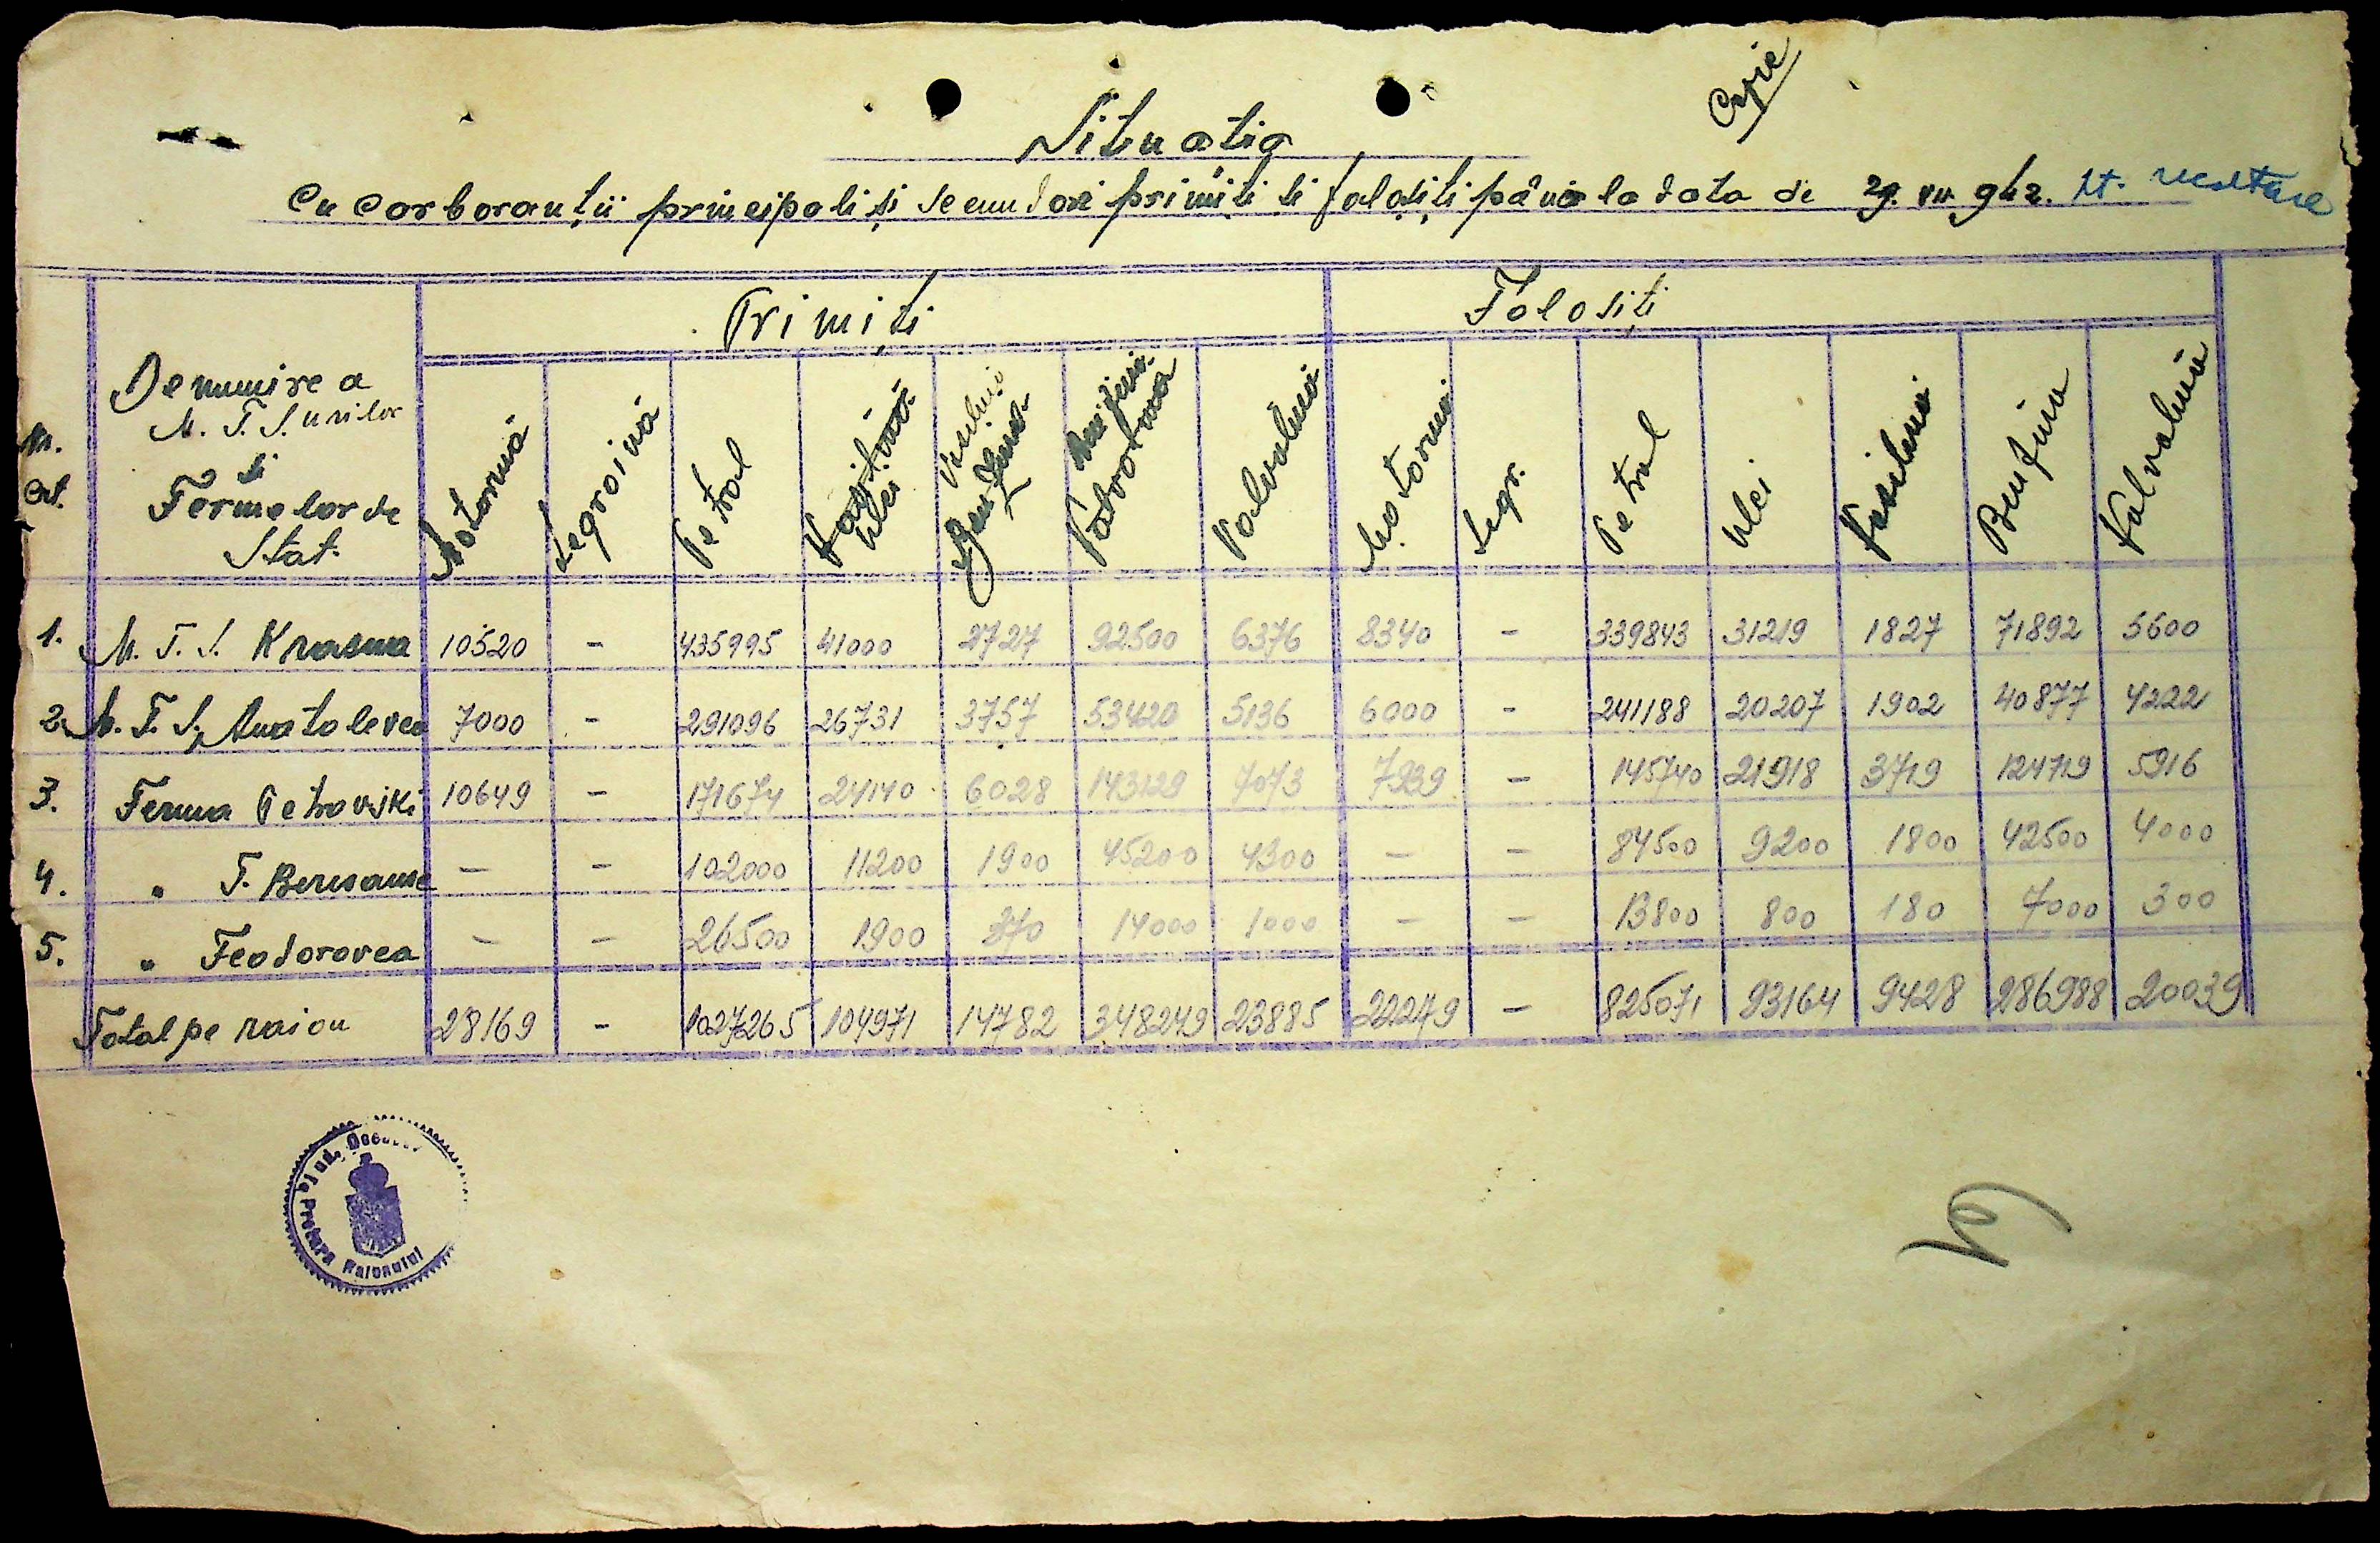 Copie
Situația
Cu carboranții principali și secundari primiți și folosiți până la data de 29. VII. 942. pt. recoltare
Nr. Crt.
Denumirea M. T. S. urilor și Fermelor de Stat.
Primiți
Folosiți
Motorină Legroină Petrol Ulei Vasilină Benzină Valvolină Motorină Legr. Petrol Ulei Vasilină Benzina Valvolină
1. M. T. S. Krasna 10520 - 435995 41000 2727 92500 6376 8340 - 339843 31219 1827 71892 5600
2. M. T. S. Anatolevca 7000 - 291096 26731 3757 53420 5136 6000 - 241188 20207 1902 40877 4222
3. Ferma Petrovski 10649 - 171674 24140 6028 143129 7073 7939 - 145740 21918 3719 124719 5916
4. „ F. - - 102000 11200 1900 45200 4300 - - 84500 9200 1800 42500 4000
5. „ Feodorovca - - 26500 1900 370 14000 1000 - - 13800 800 180 7000 300
Total pe raion 28169 - 1027265 104971 14782 348249 23885 22279 - 825071 93164 9428 286988 20039
Pretura Raionului
Jud.